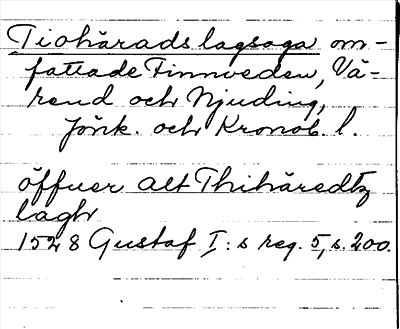 Tiohäradslagsaga om-
fattade Finnveden, Vä-
rend och Njuding,
Jönk. och Kronob. l.
öffuer alt Thihäredtz
lagh
1528 Gustaf I:s reg. 5, s. 200.